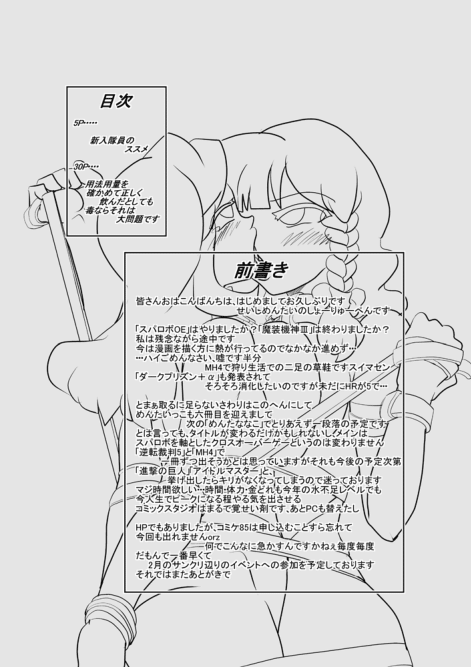 目次
5P‥‥‥
新入隊員の
ススメ
30P‥‥
用法用量を
確かめて正しく
飲んだとしても
毒ならそれは
大問題です
前書き
皆さんおはこんばんちは、はじめましてお久しぶりです
せいしめんたいのしょーりゅーへんです
「スパロボOE」はやりましたか?「魔装機神Ⅲ」は終わりましたか?
私は残念ながら途中です
今は漫画を描く方に熱が行ってるのでなかなか進めず…
…ハイごめんなさい、嘘です半分
MH4で狩り生活での二足の草鞋ですスイマセン
「ダークプリズン+α」も発表されて
そろそろ消化もたいのですが未だにHRが5で…
とまぁ取るに足らないさわりはこのへんにして
めんたいっこも六冊目を迎えまして
次の「めんたななこ」でとりあえず一段落の予定です
とは言っても、タイトルが変わるだけかもしれないし、メインは
スパロボを軸としたクロスオーバーゲーというのは変わりません
「逆転裁判5」と「MH4」で
一冊ずつ出そうかとは思っていますがそれも今後の予定次第
「進撃の巨人」「アイドルマスター」と、
挙げ出したらキリがなくなってしまうので迷っております
マジ時間欲しい…時間・体力・金どれも今年の水不足レベルでも
今人生でピークになる程やる気を出させる
コミックスタジオはまるで覚せい剤です、あとPCも替えたし
HPでもありましたが、コミケ85は申し込むことすら忘れて
今回も出れませんorz
何でこんなに急かすんですかねぇ毎度毎度
だもんで一番早くて
2月のサンクリ辺りのイベントへの参加を予定しております
それではまたあとがきで